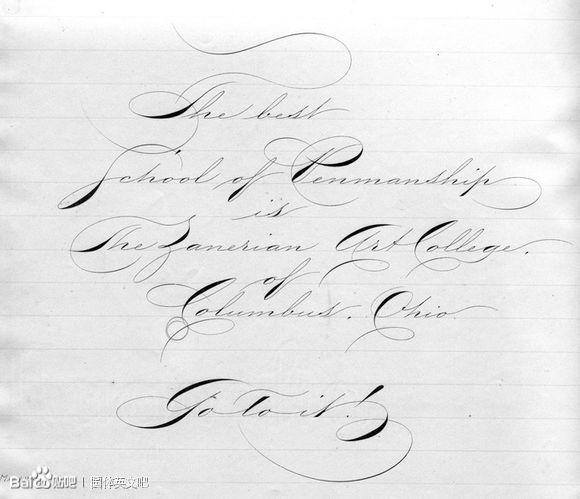 The best
School of Penmanship
is
The Zanerian Art College.
of
Columbus. Ohio.
Go to it!
Bai贴吧 | 圆体英文吧